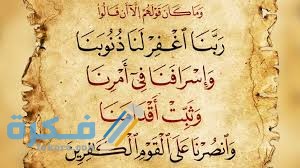 وَمَا كَانَ قَوْلَهُمْ إِلَّا أَن قَالُوا
رَبَّنَا اغْفِرْ لَنَا ذُنُوبَنَا
وَإِسْرَافَنَا فِي أَمْرِنَا
وَثَبِّتْ أَقْدَامَنَا
وَانصُرْنَا عَلَى الْقَوْمِ الْكَافِرِينَ
فكرة